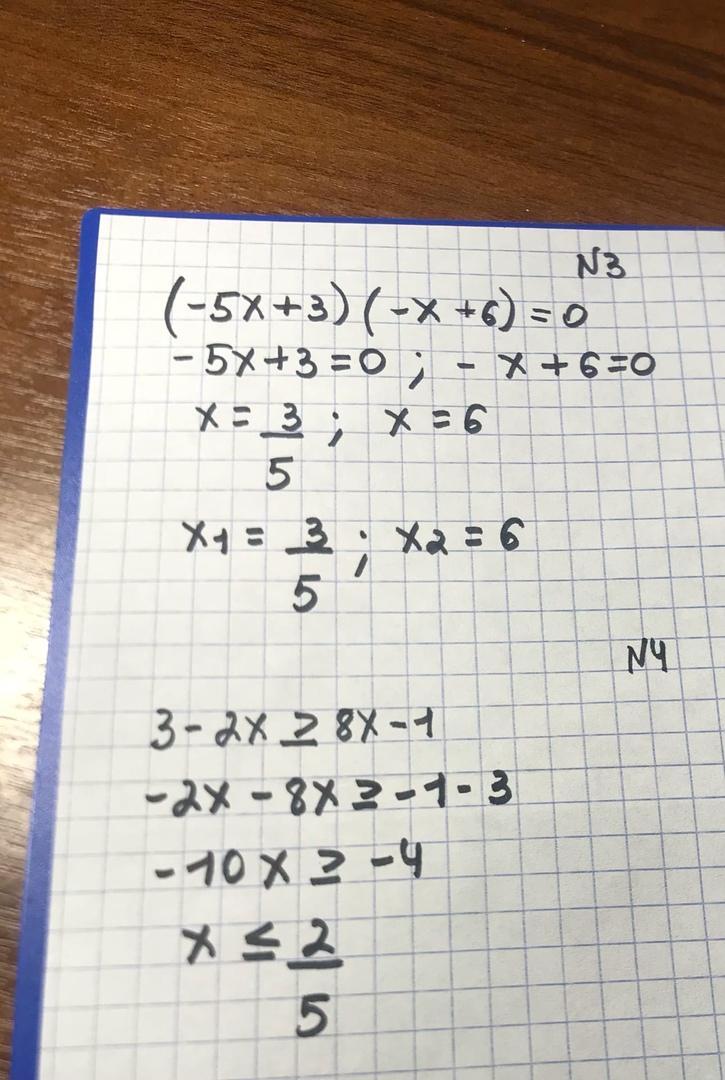 N3
(-5x+3)(-x+6)=0
-5x+3=0; -x+6=0
x=3/5; x=6
x1=3/5; x2=6
N4
3-2x≥8x-1
-2x-8x≥-1-3
-10x≥-4
x≤2/5